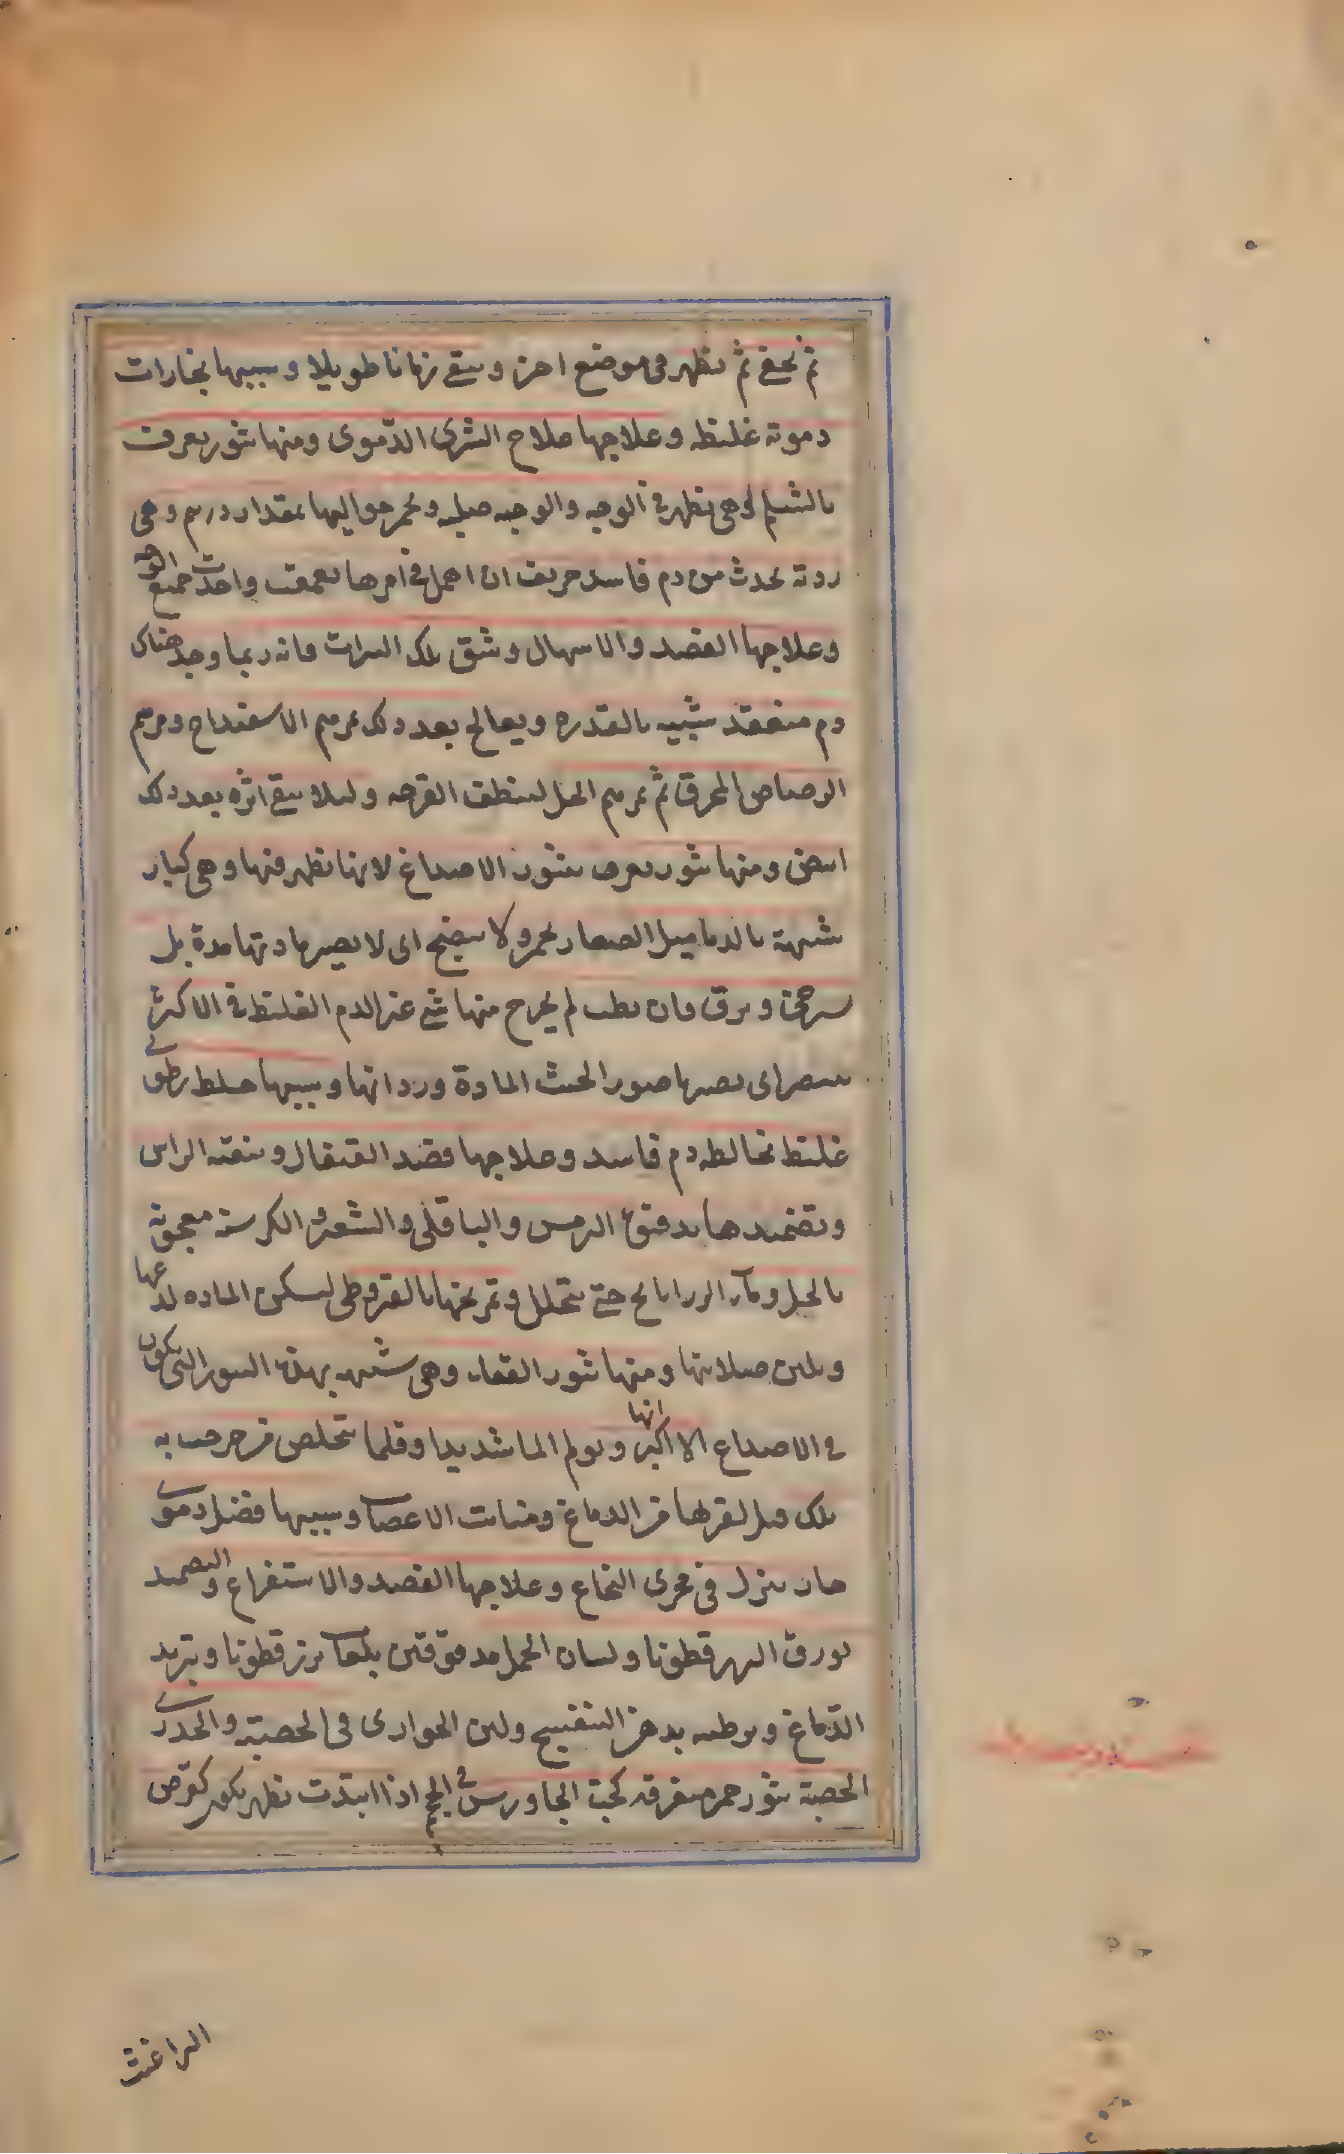 ثم تخفى ثم تظهر فى موضع اخر وتبقى زمانا طويلا وسببها بخارات
دموية غليظة وعلاجها علاج الشرى الدموى ومنها بثور يعرف
وهى تظهر فى الوجه والوجنة صلبة ويحمر حواليها بمقدار درهم وهى
ردية تحدث من دم فاسد حريف ان اهمل فى امرها تعمقت واخذت جميع الوجه
وعلاجها الفصد والاسهال وشق تلك البثرات فانه ربما وجد هناك
دم منعقد شبيه بالغدد ويعالج بعد ذلك بمرهم الاسفيداج ومرهم
الرصاص المحرق ثم بمرهم الخل لينظف القرحه ولئلا يبقى اثره بعد ذلك
ابيض ومنها بثور يعرف ببثور الاصداغ لانها تظهر فيها وهى كبار
شبيهة بالدماميل الصغار تحمر ولا ينضج اى لا يصير مادتها مدة بل
وترق وان بطت لم يخرج منها شئ غير الدم الغليظ فى الاكثر
اى تصير ناصورا لخبث المادة وردائها وسببها خلط رطوبى
غليظ تخالطه دم فاسد وعلاجها فصد القيفال وتنقية الراس
وتضميدها بدقيق الترمس والباقلى والشعير والكرسنه معجونة
بالخل وماء الرازيانج حتى تتحلل وتمريخها بالقيروطى لتسكن الماده لذعها
وتلين صلابتها ومنها بثور القفاء وهى شبيهه بهذه البثور التى يكون
فى الاصداغ الا انها اكبر وتولم الما شديدا وقلما يتخلص من خرجت به
تلك قبل لقربها من الدماغ ومنابت الاعصاب وسببها فضل دموى
حاد ينزل فى مجرى النخاع وعلاجها الفصد والاستفراغ والتضميد
بورق البزر قطونا ولسان الحمل مدقوقتين بلعاب بزر قطونا وتبريد
الدماغ وترطيبه بدهن البنفسج ولبن الجوارى فى الحصبة والجدرى
الحصبة بثور حمر متفرقه كحب الجاورس فى الحجم اذا ابتدت تظهر يكون كقرص
البراغيث